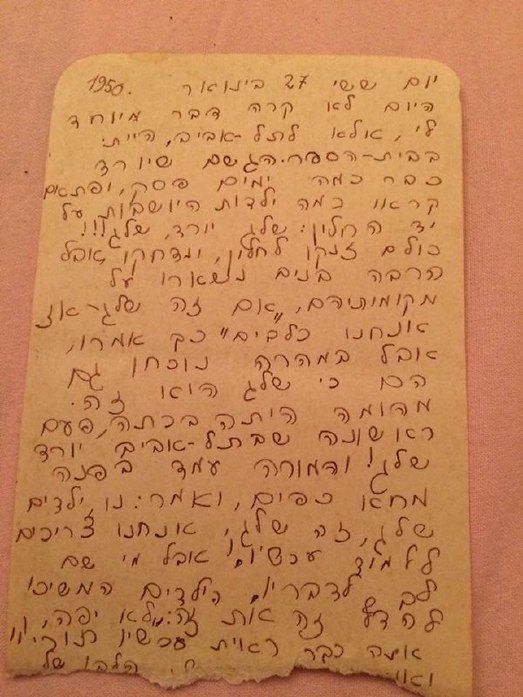 יום ששי 27 בינואר 1950.
היום לא קרה דבר מיוחד
לי, אלא לתל-אביב, הייתי
בבית-הספר. הגשם שיורד
כבר כמה ימים פסק, ופתאם
קראו כמה ילדות היושבות על
יד החלון: שלג יורד, שלג!!!
כולם זנקו לחלון, ונדחקו, אבל
הרבה בנים נשארו על
מקומותיהם, "אם זה שלג-אז
אנחנו כלבים" כך אמרו,
אבל במהרה נוכחו גם
הם כי שלג הוא זה.
מהומה היתה בכתה, פעם
ראשונה שבתל-אביב יורד
שלג! והמורה עמד בפנה
מחא כפים, ואמר: נו, ילדים
שלג, זה שלג, אנחנו צריכים
ללמוד עכשיו! אבל מי שם
לב לדבריו, הילדים המשיכו
זה את זה: לא יפה,
אתה כבר ראית עכשיו תורי"
ואני